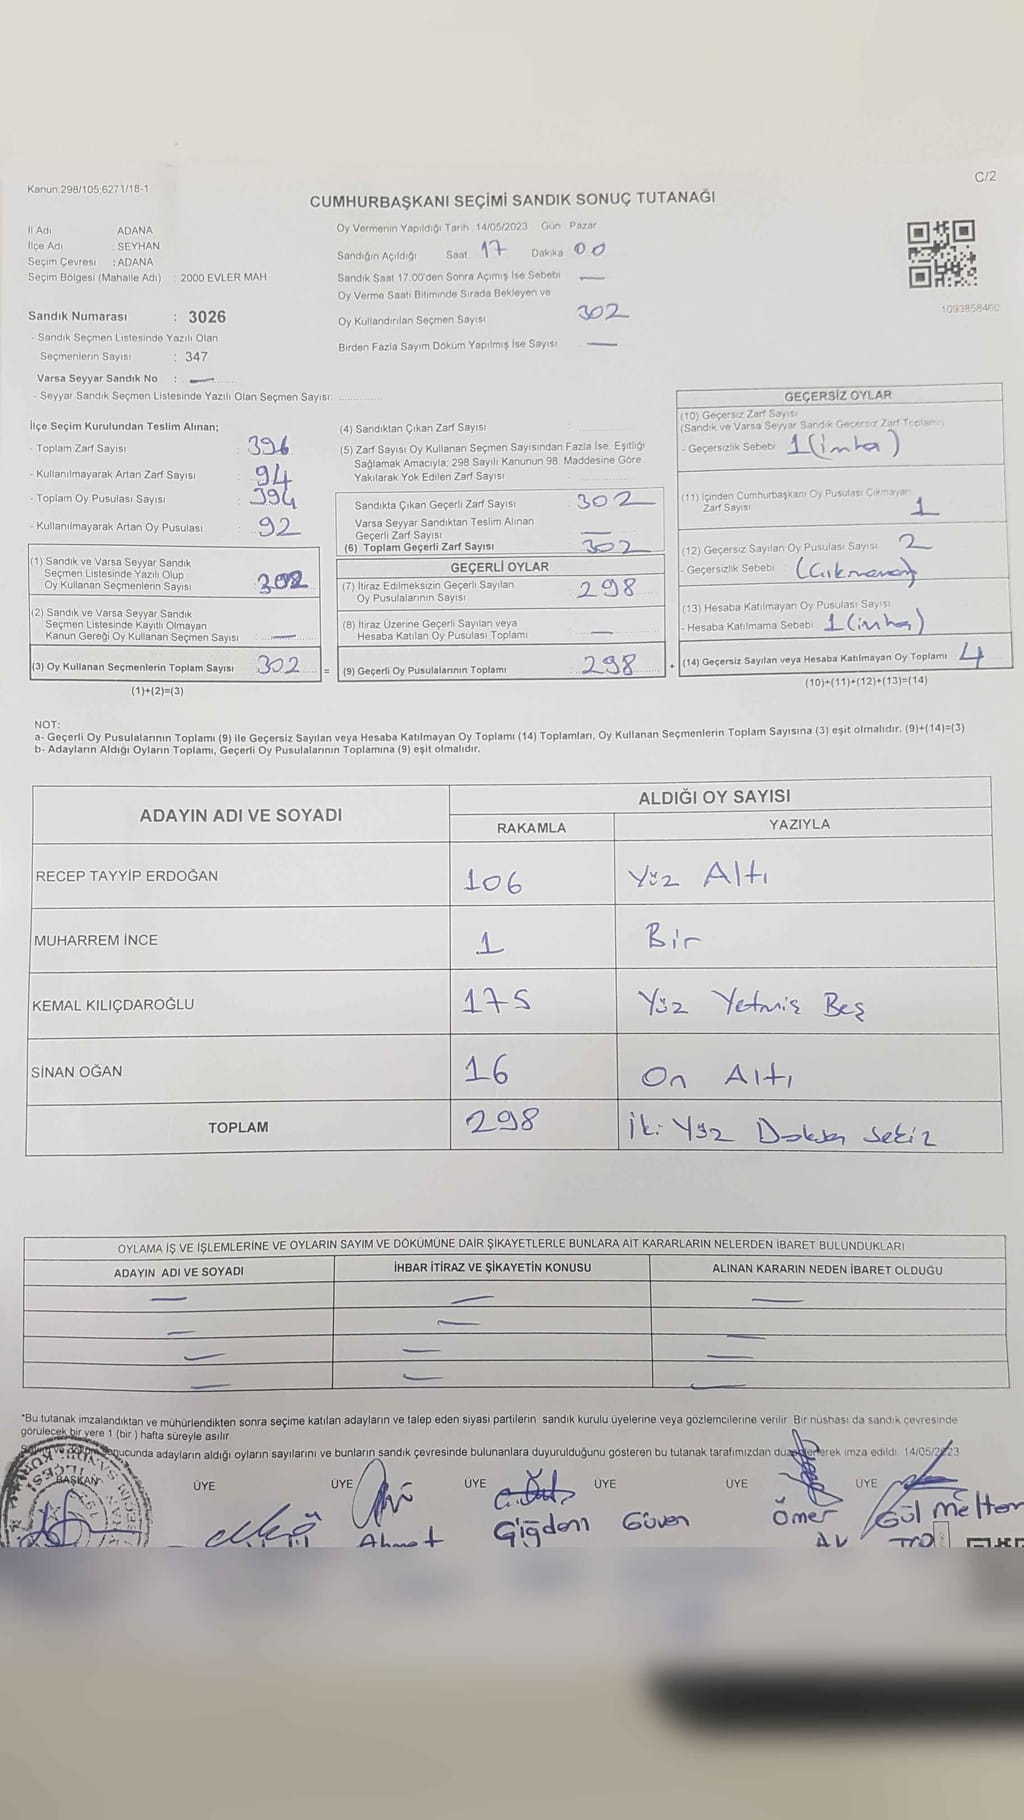 Kanun,298/105,6271/18-1
C/2
CUMHURBAŞKANI SEÇİMİ SANDIK SONUÇ TUTANAĞI
İl Adı ADANA
İlçe Adı : SEYHAN
Seçim Çevresi : ADANA
Seçim Bölgesi (Mahalle Adı) : 2000 EVLER MAH.
Sandık Numarası : 3026
- Sandık Seçmen Listesinde Yazılı Olan
Seçmenlerin Sayısı : 347
Varsa Seyyar Sandık No : —
- Seyyar Sandık Seçmen Listesinde Yazılı Olan Seçmen Sayısı:
Oy Vermenin Yapıldığı Tarih : 14/05/2023 Gün : Pazar
Sandığın Açıldığı Saat 17 Dakika 00
Sandık Saat 17.00'den Sonra Açımış İse Sebebi —
Oy Verme Saati Bitiminde Sırada Bekleyen ve
Oy Kullandırılan Seçmen Sayısı 302
Birden Fazla Sayım Döküm Yapılmış İse Sayısı —
1093858460
İlçe Seçim Kurulundan Teslim Alınan;
- Toplam Zarf Sayısı : 396
- Kullanılmayarak Artan Zarf Sayısı : 94
- Toplam Oy Pusulası Sayısı : 394
- Kullanılmayarak Artan Oy Pusulası : 92
(1) Sandık ve Varsa Seyyar Sandık
Seçmen Listesinde Yazılı Olup
Oy Kullanan Seçmenlerin Sayısı 302
(2) Sandık ve Varsa Seyyar Sandık
Seçmen Listesinde Kayıtlı Olmayan
Kanun Gereği Oy Kullanan Seçmen Sayısı : —
(3) Oy Kullanan Seçmenlerin Toplam Sayısı 302 =
(1)+(2)=(3)
(4) Sandıktan Çıkan Zarf Sayısı
(5) Zarf Sayısı Oy Kullanan Seçmen Sayısından Fazla İse, Eşitliği
Sağlamak Amacıyla, 298 Sayılı Kanunun 98. Maddesine Göre
Yakılarak Yok Edilen Zarf Sayısı
Sandıkta Çıkan Geçerli Zarf Sayısı 302
Varsa Seyyar Sandıktan Teslim Alınan
Geçerli Zarf Sayısı —
(6) Toplam Geçerli Zarf Sayısı 302
GEÇERLİ OYLAR
(7) İtiraz Edilmeksizin Geçerli Sayılan
Oy Pusulalarının Sayısı : 298
(8) İtiraz Üzerine Geçerli Sayılan veya
Hesaba Katılan Oy Pusulası Toplamı : —
(9) Geçerli Oy Pusulalarının Toplamı : 298 +
GEÇERSİZ OYLAR
(10) Geçersiz Zarf Sayısı
(Sandık ve Varsa Seyyar Sandık Geçersiz Zarf Toplamı)
- Geçersizlik Sebebi 1 (imha)
(11) İçinden Cumhurbaşkanı Oy Pusulası Çıkmayan
Zarf Sayısı 1
(12) Geçersiz Sayılan Oy Pusulası Sayısı 2
- Geçersizlik Sebebi
(13) Hesaba Katılmayan Oy Pusulası Sayısı
- Hesaba Katılmama Sebebi 1 (imha)
(14) Geçersiz Sayılan veya Hesaba Katılmayan Oy Toplamı 4
(10)+(11)+(12)+(13)=(14)
NOT:
a- Geçerli Oy Pusulalarının Toplamı (9) ile Geçersiz Sayılan veya Hesaba Katılmayan Oy Toplamı (14) Toplamları, Oy Kullanan Seçmenlerin Toplam Sayısına (3) eşit olmalıdır. (9)+(14)=(3)
b- Adayların Aldığı Oyların Toplamı, Geçerli Oy Pusulalarının Toplamına (9) eşit olmalıdır.
ADAYIN ADI VE SOYADI ALDIĞI OY SAYISI
RAKAMLA YAZIYLA
RECEP TAYYİP ERDOĞAN 106 Yüz Altı
MUHARREM İNCE 1 Bir
KEMAL KILIÇDAROĞLU 175 Yüz Yetmiş Beş
SİNAN OĞAN 16 On Altı
TOPLAM 298 İki Yüz Doksan Sekiz
OYLAMA İŞ VE İŞLEMLERİNE VE OYLARIN SAYIM VE DÖKÜMÜNE DAİR ŞİKAYETLERLE BUNLARA AİT KARARLARIN NELERDEN İBARET BULUNDUKLARI
ADAYIN ADI VE SOYADI İHBAR İTİRAZ VE ŞİKAYETİN KONUSU ALINAN KARARIN NEDEN İBARET OLDUĞU
— — —
— — —
— — —
— — —
*Bu tutanak imzalandıktan ve mühürlendikten sonra seçime katılan adayların ve talep eden siyasi partilerin sandık kurulu üyelerine veya gözlemcilerine verilir. Bir nüshası da sandık çevresinde
görülecek bir yere 1 (bir ) hafta süreyle asılır.
Sayım ve döküm sonucunda adayların aldığı oyların sayılarını ve bunların sandık çevresinde bulunanlara duyurulduğunu gösteren bu tutanak tarafımızdan düzenlenerek imza edildi. 14/05/2023
BAŞKAN ÜYE ÜYE ÜYE ÜYE ÜYE ÜYE
Ahmet Çiğdem Güven Ömer Gül Meltem